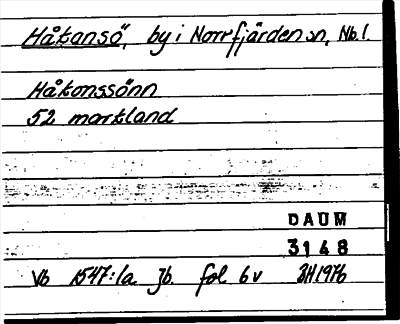 Håkansö, by i Norrfjärden sn, Nb l.
Håkonssönn
52 markland
DAUM
3148
Vb 1547:1a Jb. fol 6v 3H1976